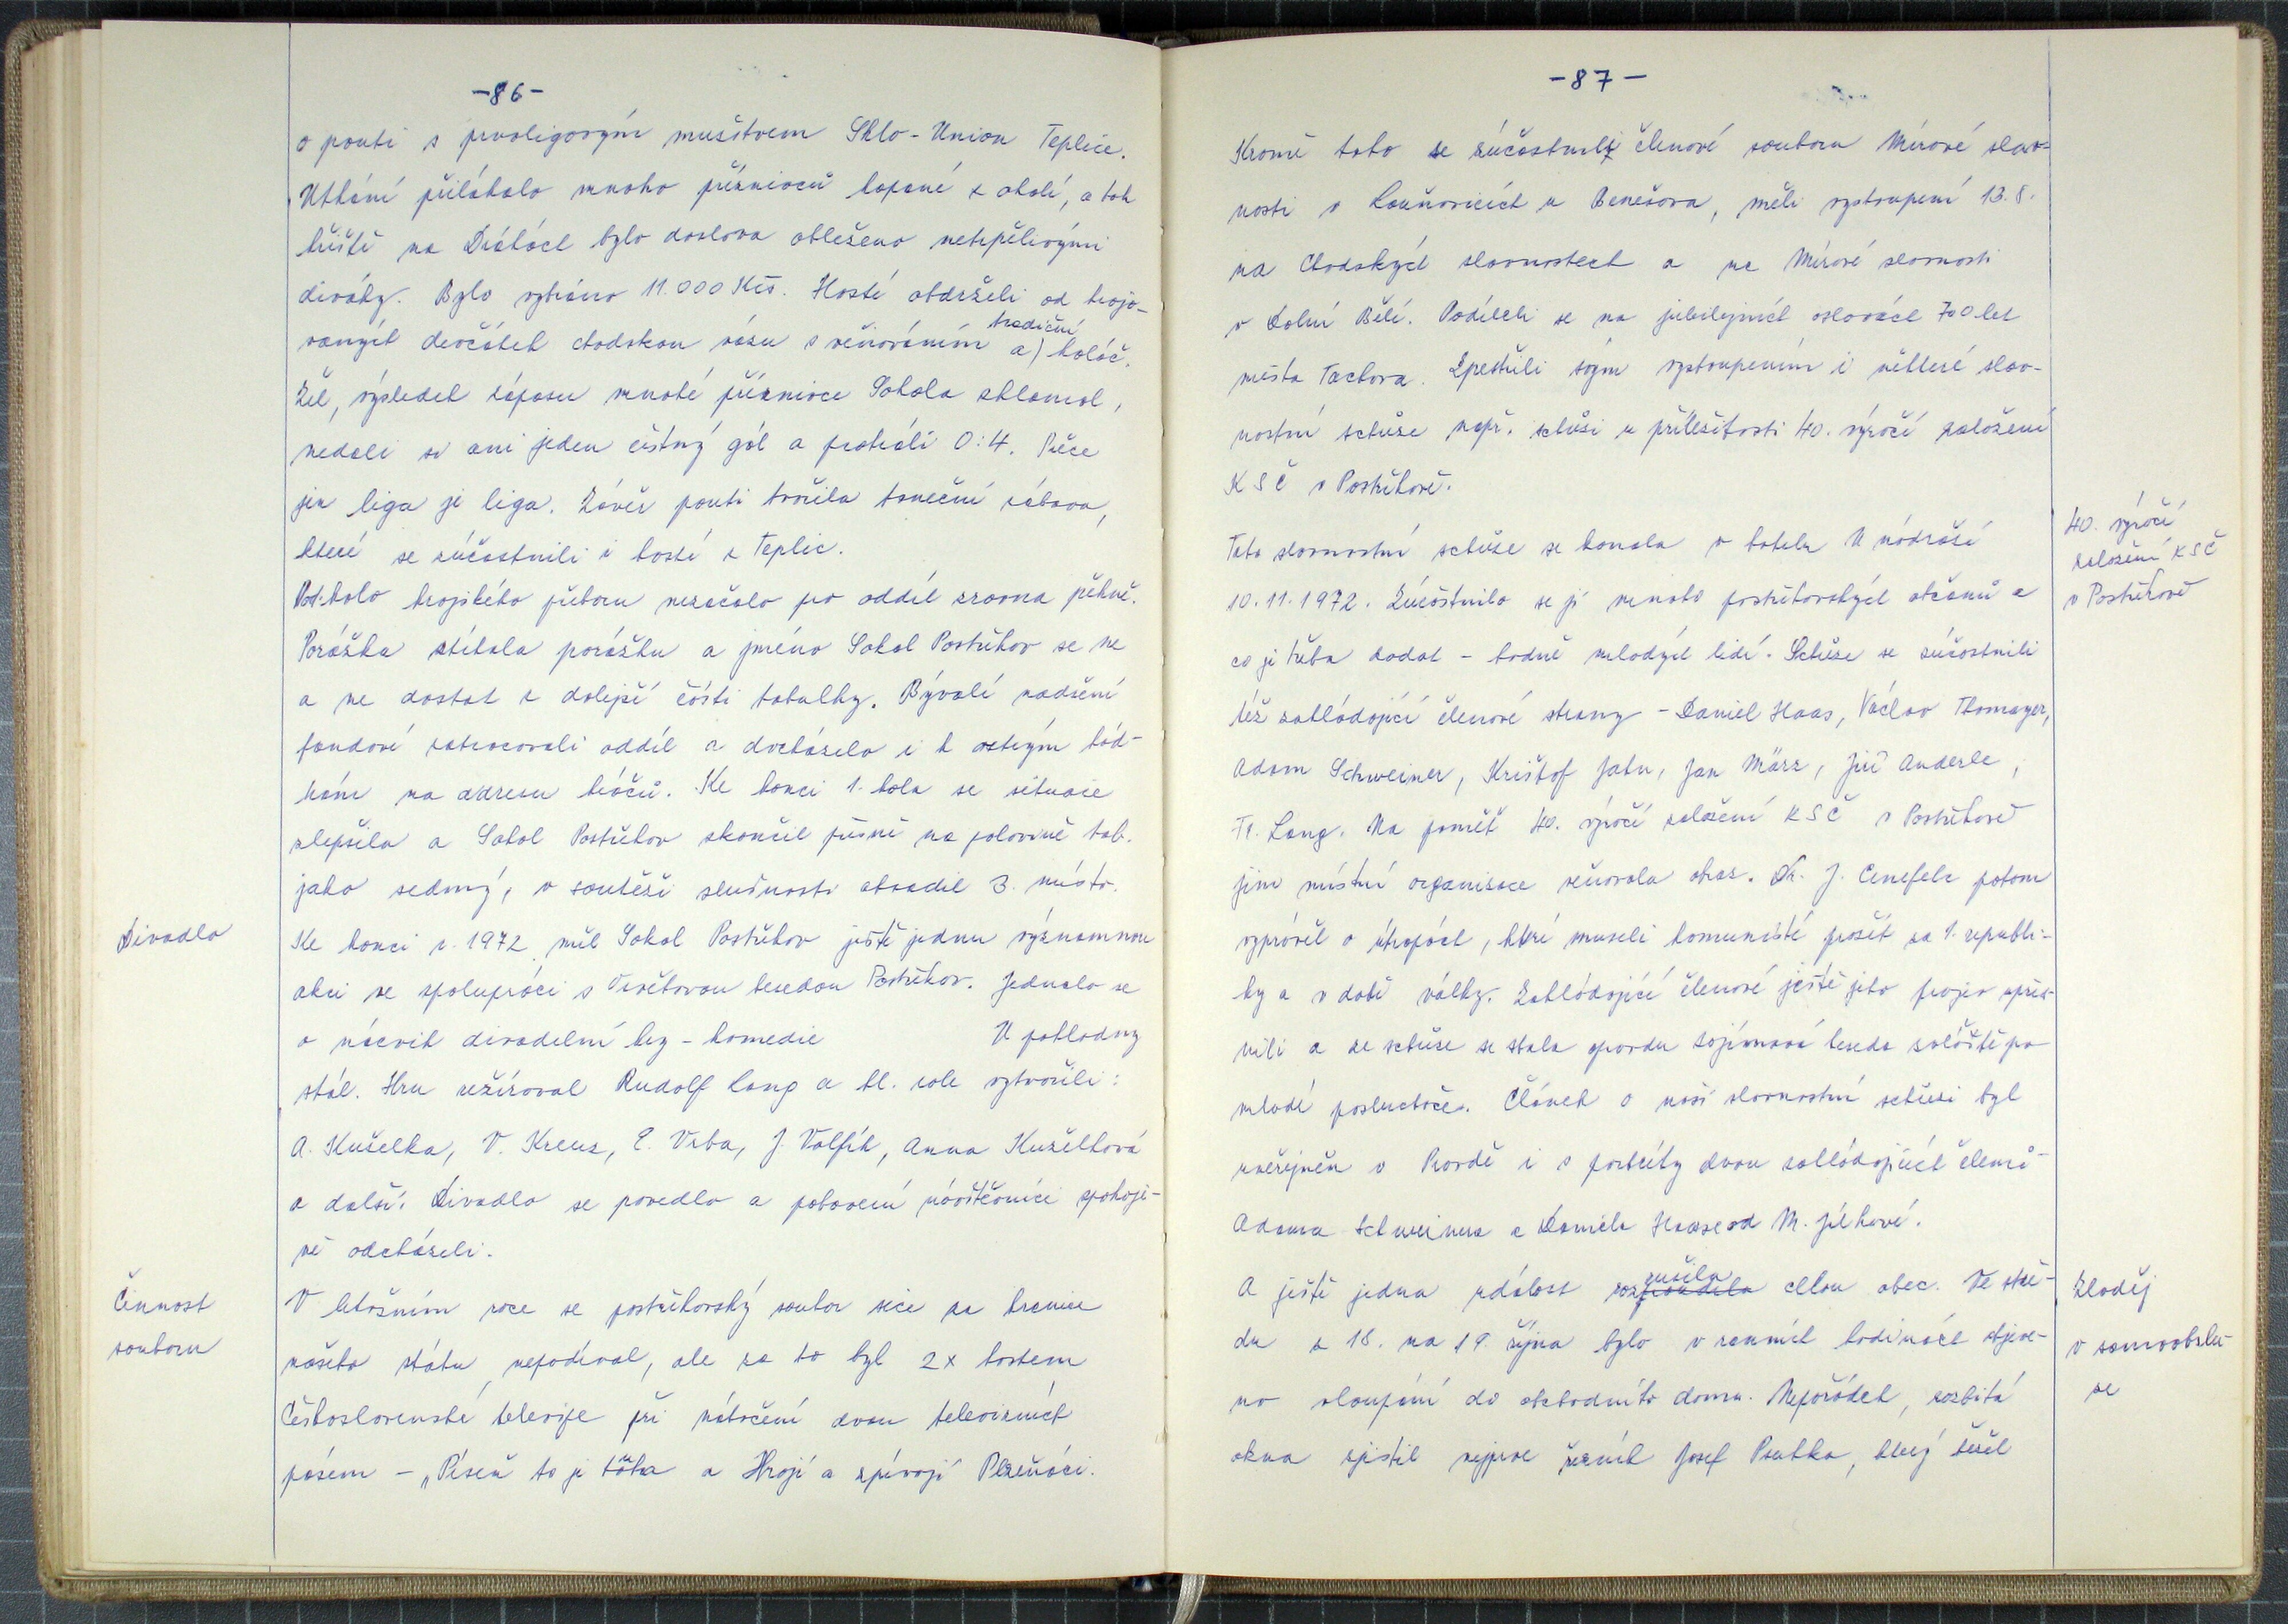 -86-
o pouti s prvoligovým mužstvem Sklo-Union Teplice.
Utkání přilákalo mnoho příznivců kopané z okolí, a tak
hřiště na Drahách bylo doslova obleženo netrpělivými
diváky. Bylo vybráno 11.000 Kčs. Hosté obdrželi od krojo-
vaných děvčátek chodskou vázu s věnováním a) tradiční koláč.
Žel, výsledek zápasu mnohé příznivce Sokola zklamal,
nedali si ani jeden čestný gól a prohráli 0:4. Přece
jen liga je liga. Závěr pouti tvořila taneční zábava,
které se zúčastnili i hosté z Teplic.
Podz. kolo krajského přeboru nezačalo pro oddíl zrovna pěkně.
Porážka stíhala porážku a jméno Sokol Postřekov se ne
a ne dostat z dolejší části tabulky. Bývalí nadšení
fandové zatracovali oddíl a docházelo i k ostrým hád-
kám na adresu hráčů. Ke konci 1. kola se situace
zlepšila a Sokol Postřekov skončil přesně na polovině tab.
jako sedmý, v soutěži slušnosti obsadil 3. místo.
Divadlo
Ke konci r. 1972 měl Sokol Postřekov ještě jednu významnou
akci ve spolupráci s Osvětovou besedou Postřekov. Jednalo se
o nácvik divadelní hry - komedie U pokladny
stál. Hru režíroval Rudolf Lang a hl. role vytvořili:
A. Kuželka, V. Kreuz, E. Vrba, J. Volfík, Anna Kuželková
a další. Divadlo se povedlo a pobavení návštěvníci spokoje-
ně odcházeli.
Činnost
souboru
V letošním roce se postřekovský soubor sice za hranice
našeho státu nepodíval, ale za to byl 2x hostem
Československé televize při natáčení dvou televizních
pásem - „Píseň to je táta a Hrají a zpívají Plzeňáci.
-87-
Kromě toho se zúčastnili členové souboru Mírové slav-
nosti v Louňovicích u Benešova, měli vystoupení 13.8.
na Chodských slavnostech a na Mírové slavnosti
v Dolní Bělé. Podíleli se na jubilejních oslavách 700 let
města Tachova. Zpestřili svým vystoupením i některé slav-
nostní schůze např. schůzi u příležitosti 40. výročí založení
KSČ v Postřekově.
40. výročí
založení KSČ
v Postřekově
Tato slavnostní schůze se konala v hotelu U nádraží
10.11.1972. Zúčastnilo se jí mnoho postřekovských občanů a
co je třeba dodat - hodně mladých lidí. Schůze se zúčastnili
též zakládající členové strany - Daniel Haas, Václav Thomayer,
Adam Schweiner, Krištof Jahn, Jan März, Jiří Anderle,
Fr. Lang. Na paměť 40. výročí založení KSČ v Postřekově
jim místní organisace věnovala obraz. Dr. J. Cenefels potom
vyprávěl o útrapách, které museli komunisté prožít za 1. republi-
ky a v době války. Zakládající členové ještě jeho projev upřes-
nili a ze schůze se stala opravdu zajímavá beseda zvláště pro
mladé posluchače. Článek o naší slavnostní schůzi byl
uveřejněn v Pravdě i s portréty dvou zakládajících členů -
Adama Schweinera a Daniela Haase od M. Jílkové.
Zloděj
v samoobslu-
ze
A ještě jedna událost rozrušila celou obec. Ve stře-
du z 18. na 19. října bylo v ranních hodinách objeve-
no vloupání do obchodního domu. Nepořádek, rozbitá
okna zjistil nejprve řezník Josef Psutka, který běžel